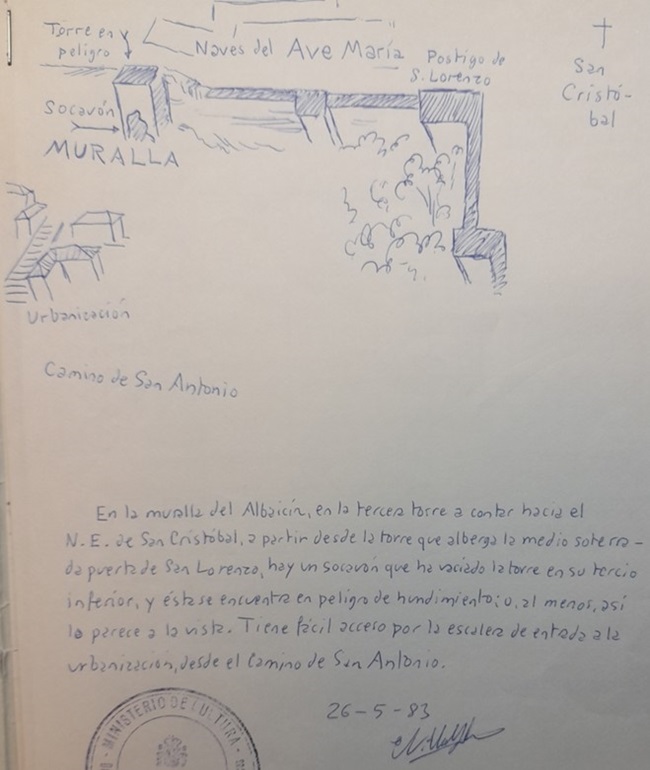 Torre en
peligro
Naves del Ave María
Postigo de
S. Lorenzo
San
Cristó-
bal
Socavón
MURALLA
Urbanización
Camino de San Antonio
En la muralla del Albaicín, en la tercera torre a contar hacia el
N.E. de San Cristóbal, a partir desde la torre que alberga la medio soterra-
da puerta de San Lorenzo, hay un socavón que ha vaciado la torre en su tercio
inferior, y ésta se encuentra en peligro de hundimiento; o, al menos, así
lo parece a la vista. Tiene fácil acceso por la escalera de entrada a la
urbanización, desde el Camino de San Antonio.
26-5-83
MINISTERIO DE CULTURA